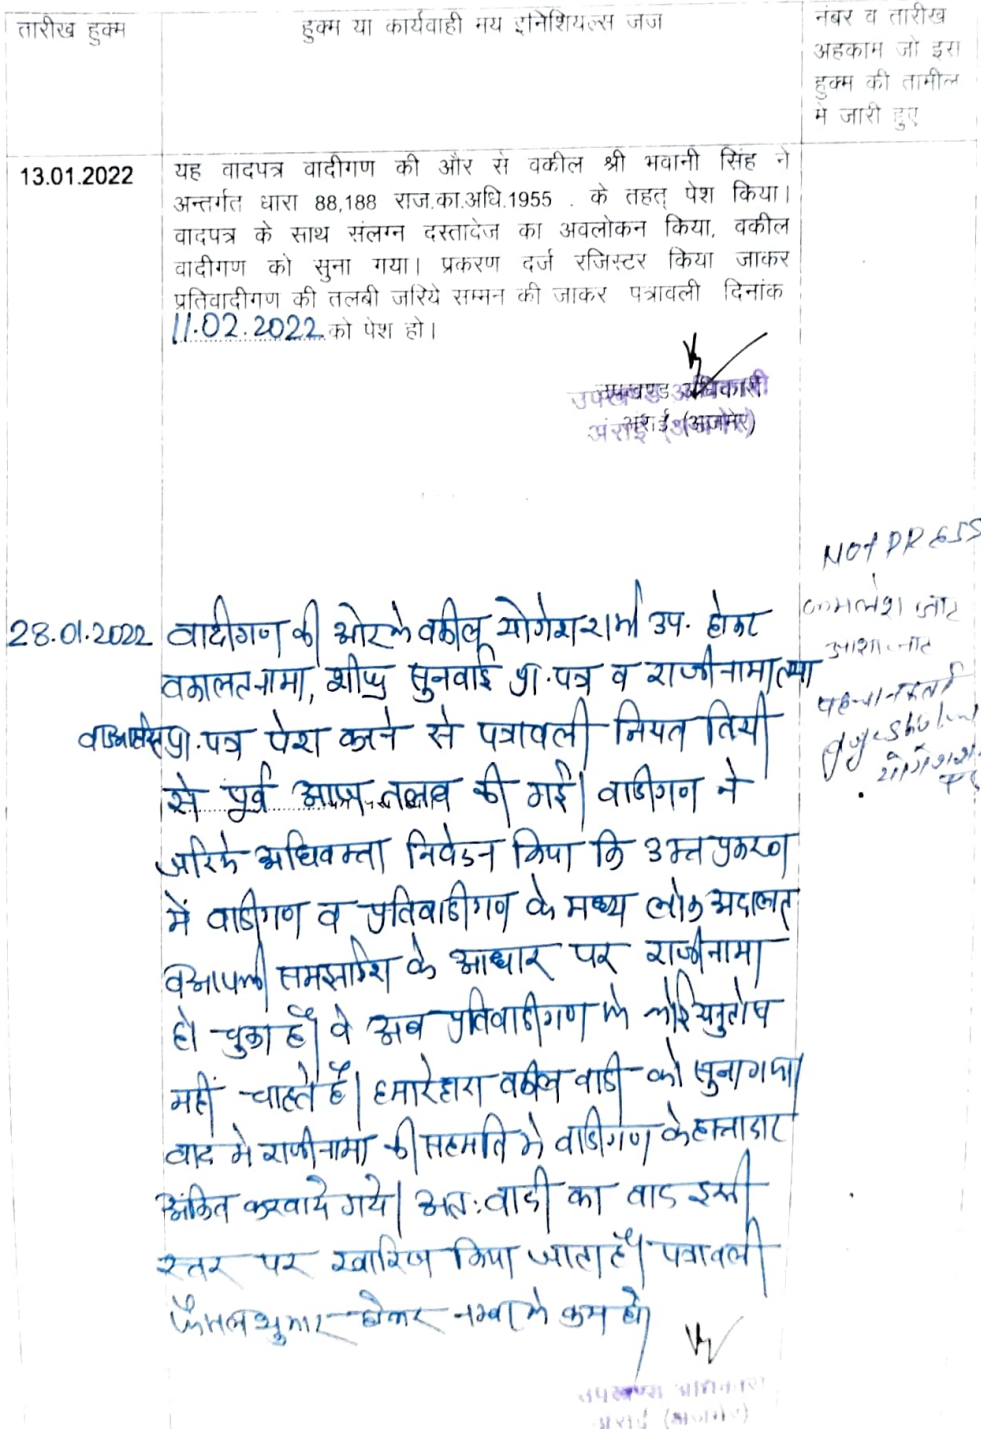 तारीख हुक्म
हुक्म या कार्यवाही मय इनिशियल्स जज
नंबर व तारीख
अहकाम जो इस
हुक्म की तामील
में जारी हुए
13.01.2022
यह वादपत्र वादीगण की और से वकील श्री भवानी सिंह ने
अन्तर्गत धारा 88,188 राज.का.अधि.1955 . के तहत् पेश किया।
वादपत्र के साथ संलग्न दस्तावेज का अवलोकन किया, वकील
वादीगण को सुना गया। प्रकरण दर्ज रजिस्टर किया जाकर
प्रतिवादीगण की तलबी जरिये सम्मन की जाकर पत्रावली दिनांक
11.02.2022 को पेश हो।
उपखण्ड अधिकारी
अंराई (अजमेर)
उपखण्ड अधिकारी
अंराई (अजमेर)
NOT PRESS
कमलेश जाट
आशा जाट
पहचानकर्ता
28.01.2022 वादीगण की ओर से वकील योगेश शर्मा उप. होकर
वकालतनामा, शीघ्र सुनवाई प्रा.पत्र व राजीनामा
प्रा.पत्र पेश करने से पत्रावली नियत तिथी
से पूर्व आज तलब की गई। वादीगण ने
जरिये अधिवक्ता निवेदन किया कि उक्त प्रकरण
में वादीगण व प्रतिवादीगण के मध्य लोक अदालत
व आपसी समझाईश के आधार पर राजीनामा
हो चुका है। वे अब प्रतिवादीगण से कोई अनुतोष
नहीं चाहते है। हमारे द्वारा वकील वादी को सुना गया।
वाद मे राजीनामा की सहमति मे वादीगण के हस्ताक्षर
अंकित करवाये गये। अत: वादी का वाद इसी
स्तर पर खारिज किया जाता है। पत्रावली
फैसल शुमार होकर नम्बर से कम हो।
उपखण्ड अधिकारी
अंराई (अजमेर)